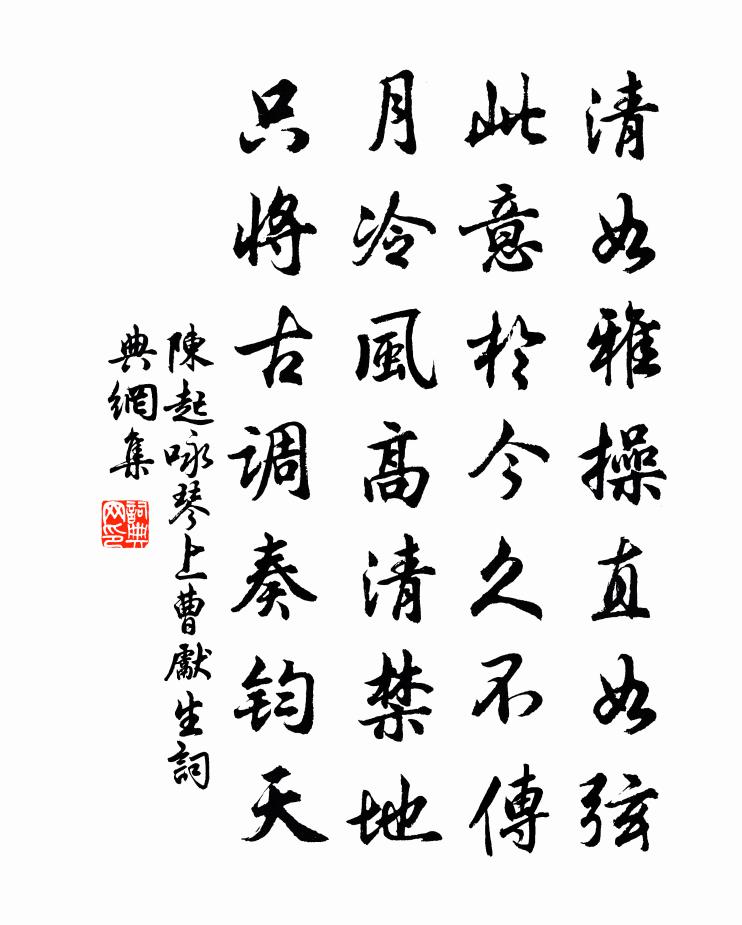 清如雅操直如弦
此意於今久不傳
月冷風高清禁地
只將古調奏钧天
陳起咏琴上曹獻生詞
典網集
詞典
网印